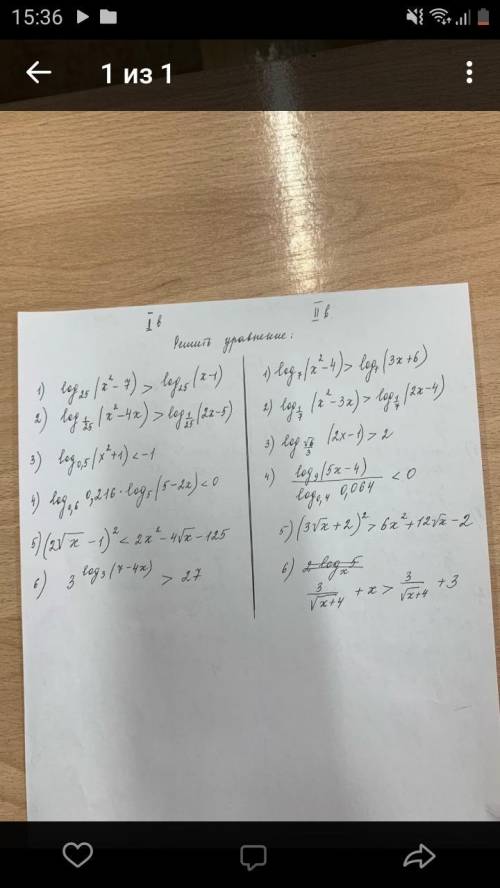 15:36
1 из 1
I в
II в
Решить уравнение:
1) log₂₅(x²-7) > log₂₅(x-1)
2) log_{1/25}(x²-4x) > log_{1/25}(2x-5)
3) log₀,₅(x²+1) < -1
4) log₀,₆ 0,216 · log₅(5-2x) < 0
5) (2√x - 1)² < 2x² - 4√x - 125
6) 3^{log₃(7-4x)} > 27
1) log₇(x²-4) > log₇(3x+6)
2) log_{1/7}(x²-3x) > log_{1/7}(2x-4)
3) log_{√6/3}(2x-1) > 2
4) log₉(5x-4) / log₀,₄ 0,064 < 0
5) (3√x + 2)² > 6x² + 12√x - 2
6) 2 log_x 5
3/√(x+4) + x > 3/√(x+4) + 3